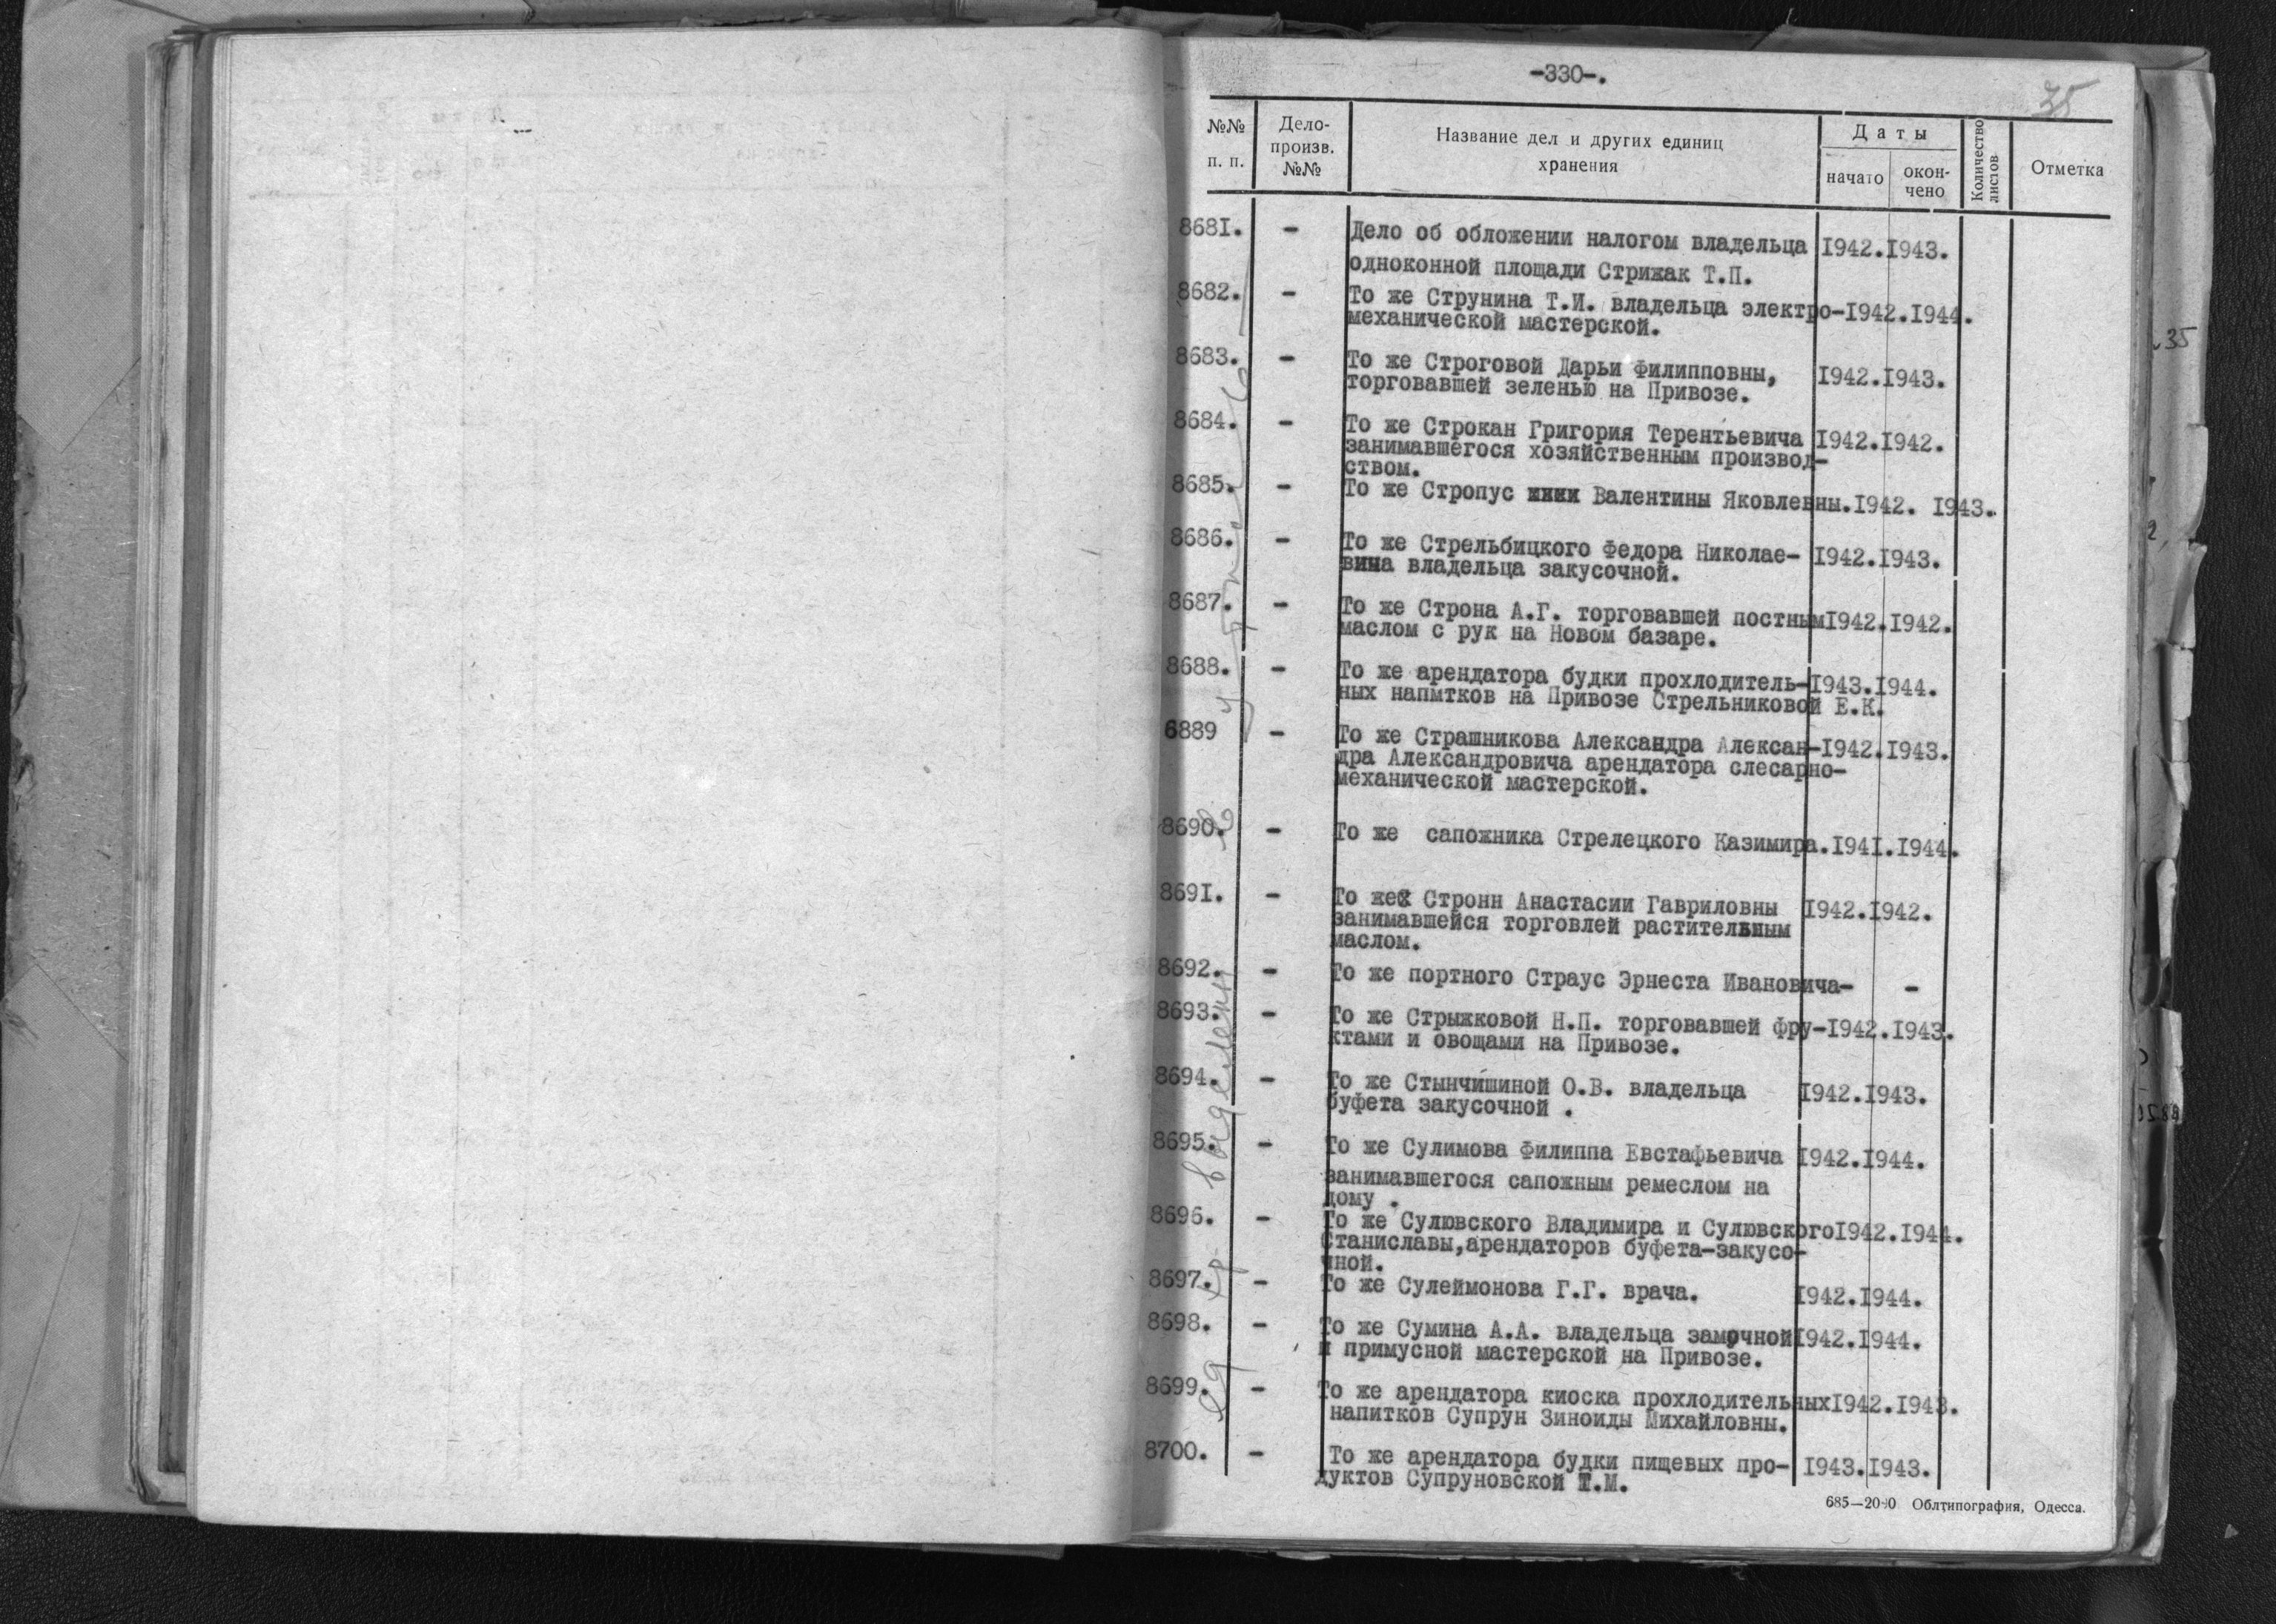 -330-.
35
№№ п. п.
Дело-произв. №№
Название дел и других единиц хранения
Даты
начато
окон-чено
Количество листов
Отметка
8681. - Дело об обложении налогом владельца 1942.1943.
одноконной площади Стрижак Т.П.
8682. - То же Струнина Т.И. владельца электро-1942.1944.
механической мастерской.
8683. - То же Строговой Дарьи Филипповны, 1942.1943.
торговавшей зеленью на Привозе.
8684. - То же Строкан Григория Терентьевича 1942.1942.
занимавшегося хозяйственным производ-
ством.
8685. - То же Стропус Валентины Яковлевны.1942. 1943.
8686. - То же Стрельбицкого Федора Николае- 1942.1943.
вича владельца закусочной.
8687. - То же Строна А.Г. торговавшей постным1942.1942.
маслом с рук на Новом базаре.
8688. - То же арендатора будки прохлодитель-1943.1944.
ных напытков на Привозе Стрельниковой Е.К.
6889 - То же Страшникова Александра Алексан-1942.1943.
дра Александровича арендатора слесарно-
механической мастерской.
8690. - То же сапожника Стрелецкого Казимира.1941.1944.
8691. - То же Стронн Анастасии Гавриловны 1942.1942.
занимавшейся торговлей растительным
маслом.
8692. - То же портного Страус Эрнеста Ивановича- -
8693. - То же Стрыжковой Н.П. торговавшей фру-1942.1943.
ктами и овощами на Привозе.
8694. - То же Стынчишиной О.В. владельца 1942.1943.
буфета закусочной .
8695. - То же Сулимова Филиппа Евстафьевича 1942.1944.
занимавшегося сапожным ремеслом на
дому .
8696. - То же Сулювского Владимира и Сулювского1942.1944.
Станиславы,арендаторов буфета-закусо-
чной.
8697. - То же Сулеймонова Г.Г. врача. 1942.1944.
8698. - То же Сумина А.А. владельца замочной1942.1944.
и примусной мастерской на Привозе.
8699. - То же арендатора киоска прохлодительных1942.1943.
напитков Супрун Зиноиды Михайловны.
8700. - То же арендатора будки пищевых про- 1943.1943.
дуктов Супруновской Т.М.
685—2000 Облтипография, Одесса.
35